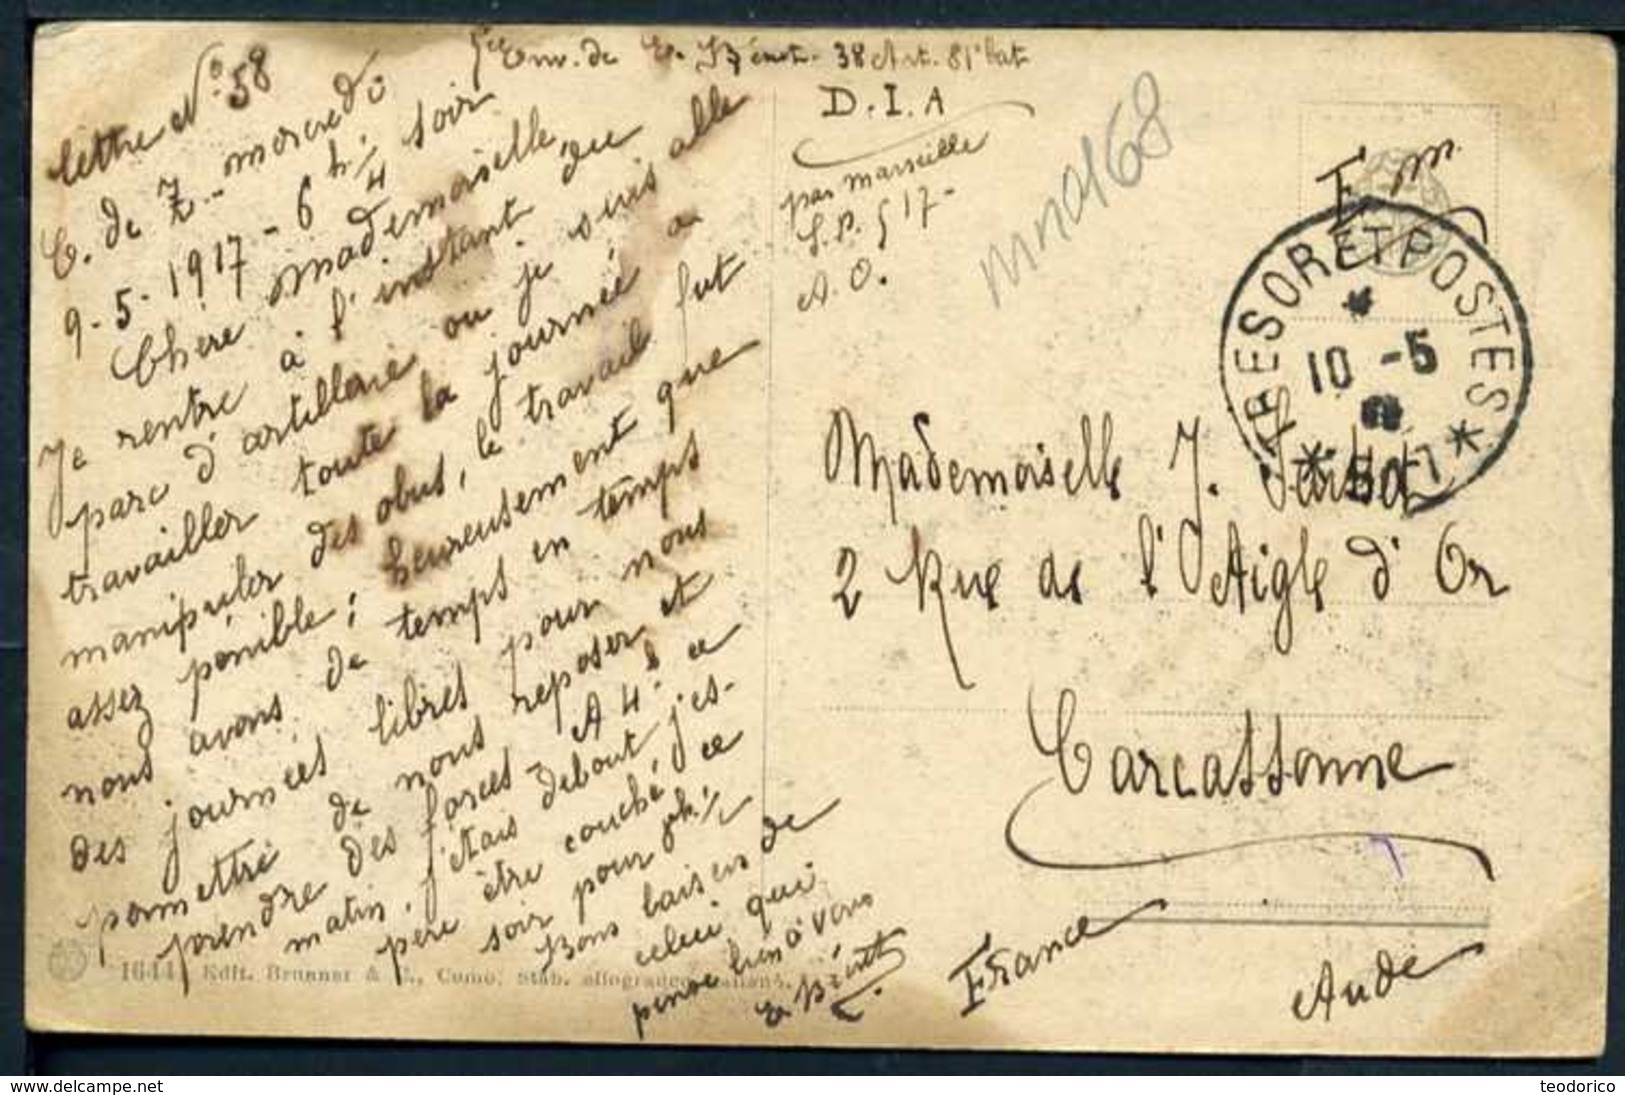 Lettre No 58
C. de Z - mercredi
9-5-1917 - 6h 1/4 soir
Chère Mademoiselle,
Je rentre à l'instant du
parc d'artillerie ou je suis allé
travailler toute la journée a
manipuler des obus, le travail fut
assez pénible; heureusement que
nous avons de temps en temps
des journées libres pour nous
permettre de nous reposer et
prendre des forces - A 4h ce
matin, j'étais debout, j'es-
père être couché, ce
soir pour
Bons baisers de
celui qui
pense bien à vous
E Bénet
Env. de E. Bénet - 38 Art. 81e bat
D.I.A
par Marseille
S.P. 517 -
A.O.
mno168
F m.
TRESOR ET POSTES
10 -5
* 517 *
Mademoiselle J.
2 Rue de l'Aigle d'Or
Carcassonne
France
Aude
1644 Edit. Brunner & C., Como. Stab.
teodorico
www.delcampe.net